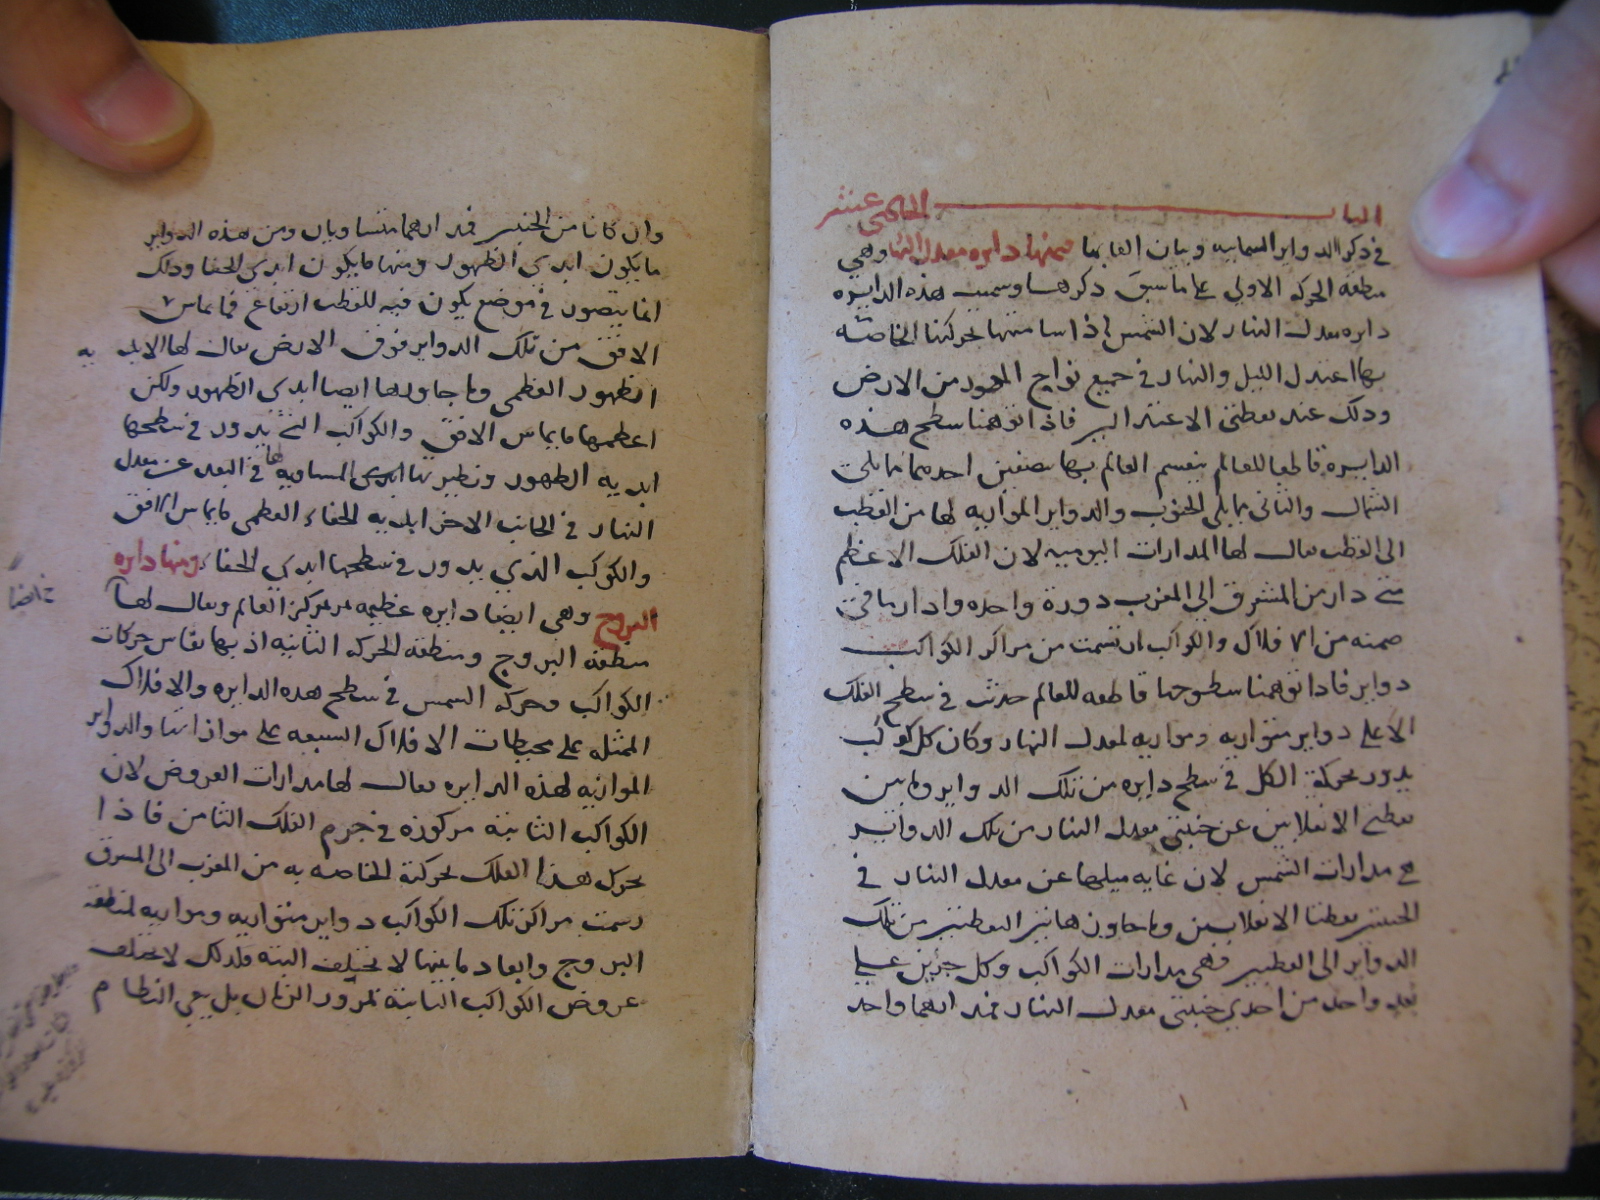 الباب الخامس عشر
في ذكر الدواير السماييه وبيان القابها فمنها دايره معدل النهار وهي
منطقه الحركه الاولي علي ما سبق ذكرها وسميت هذه الدايره
دايره معدل النهار لان الشمس اذا سامتتها بحركتها الخاصه
بها اعتدل الليل والنهار في جميع نواحي المعمور من الارض
وذلك عند نقطتي الاعتدالين فاذا توهمنا سطح هذه
الدايره قاطعا للعالم ينقسم العالم بها بنصفين احدهما مما يلي
الشمال والثاني مما يلي الجنوب والدواير الموازيه لها من القطب
الى القطب يقال لها المدارات اليوميه لان الفلك الاعظم
متي دار من المشرق الي المغرب دورة واحده وادار ما في
ضمنه من الافلاك والكواكب ارتسمت من مراكز الكواكب
دواير فاذا توهمنا سطوحها قاطعه للعالم حدثت في سطح الفلك
الاعلي دواير متوازيه وموازيه لمعدل النهار وكان كل كوكب
يدور بحركة الكل في سطح دايره من تلك الدواير وما بين
نقطتي الانقلابين عن جنبتي معدل النهار من تلك الدواير
هي مدارات الشمس لان غايه ميلها عن معدل النهار في
الجنبتين نقطتا الانقلابين وما جاوز هاتين النقطتين من تلك
الدواير الى القطبين فهي مدارات الكواكب وكل جزين علي
بعد واحد من احدي جنبتي معدل النهار فمداراهما واحد
وان كانا من الجنبتين فمداراهما متساويان ومن هذه الدواير
ما يكون ابدي الظهور ومنها ما يكون ابدي الخفا وذلك
انما يتصور في موضع يكون فيه للقطب ارتفاع فما يماس
الافق من تلك الدواير فوق الارض يقال لها الابديه
الظهور العظمي وما جاورها ايضا ابدي الظهور ولكن
اعظمها ما يماس الافق والكواكب التي تدور في سطحها
ابديه الظهور ونظيرتها المساويه لها في البعد عن معدل
النهار في الجانب الاخر ابديه الخفاء العظمي ما يماس الافق
والكوكب الذي يدور في سطحها ابدي الخفاء ومنها دايره
البروج وهي ايضا دايره عظيمه مركز العالم ويقال لها
منطقه البروج ومنطقه الحركه الثانيه اذ بها تقاس حركات
الكواكب وحركه الشمس في سطح هذه الدايره والافلاك
الممثله علي محيطات الافلاك السبعه علي موازاتها والدواير
الموازيه لهذه الدايره يقال لها مدارات العروض لان
الكواكب الثابتة مركوزه في جرم الفلك الثامن فاذا
تحرك هذا الفلك بحركة الخاصه به من المغرب الى المشرق
رسمت مراكز تلك الكواكب دواير متوازيه وموازيه لمنطقه
البروج وابعاد ما بينها لا تختلف البته فلذلك لا تختلف
عروض الكواكب الثابتة بمرور الزمان بل يبقي النظام